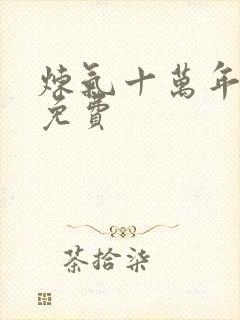 煉氣十萬年
免費
茶拾柒